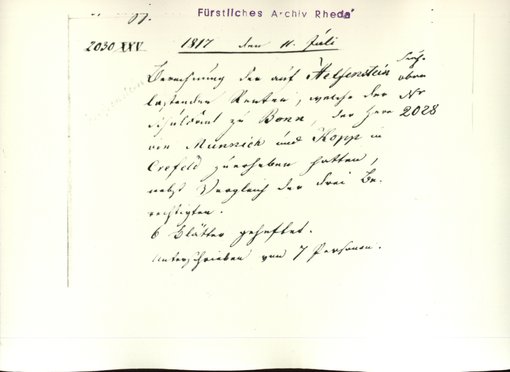 Fürstliches Archiv Rheda
2030 XXV 1817 den 11. Juli
Berechnung der auf Helfenstein Siehe
lastenden Renten, welche der oben Nr
Schulamt zu Bonn, der Herr 2028
von Münnich und Kopp in
Crefeld zuerheben hatten,
nebst Vergleich der drei Be-
rechtigten.
6 Blätter geheftet.
Unterschrieben von 7 Personen.